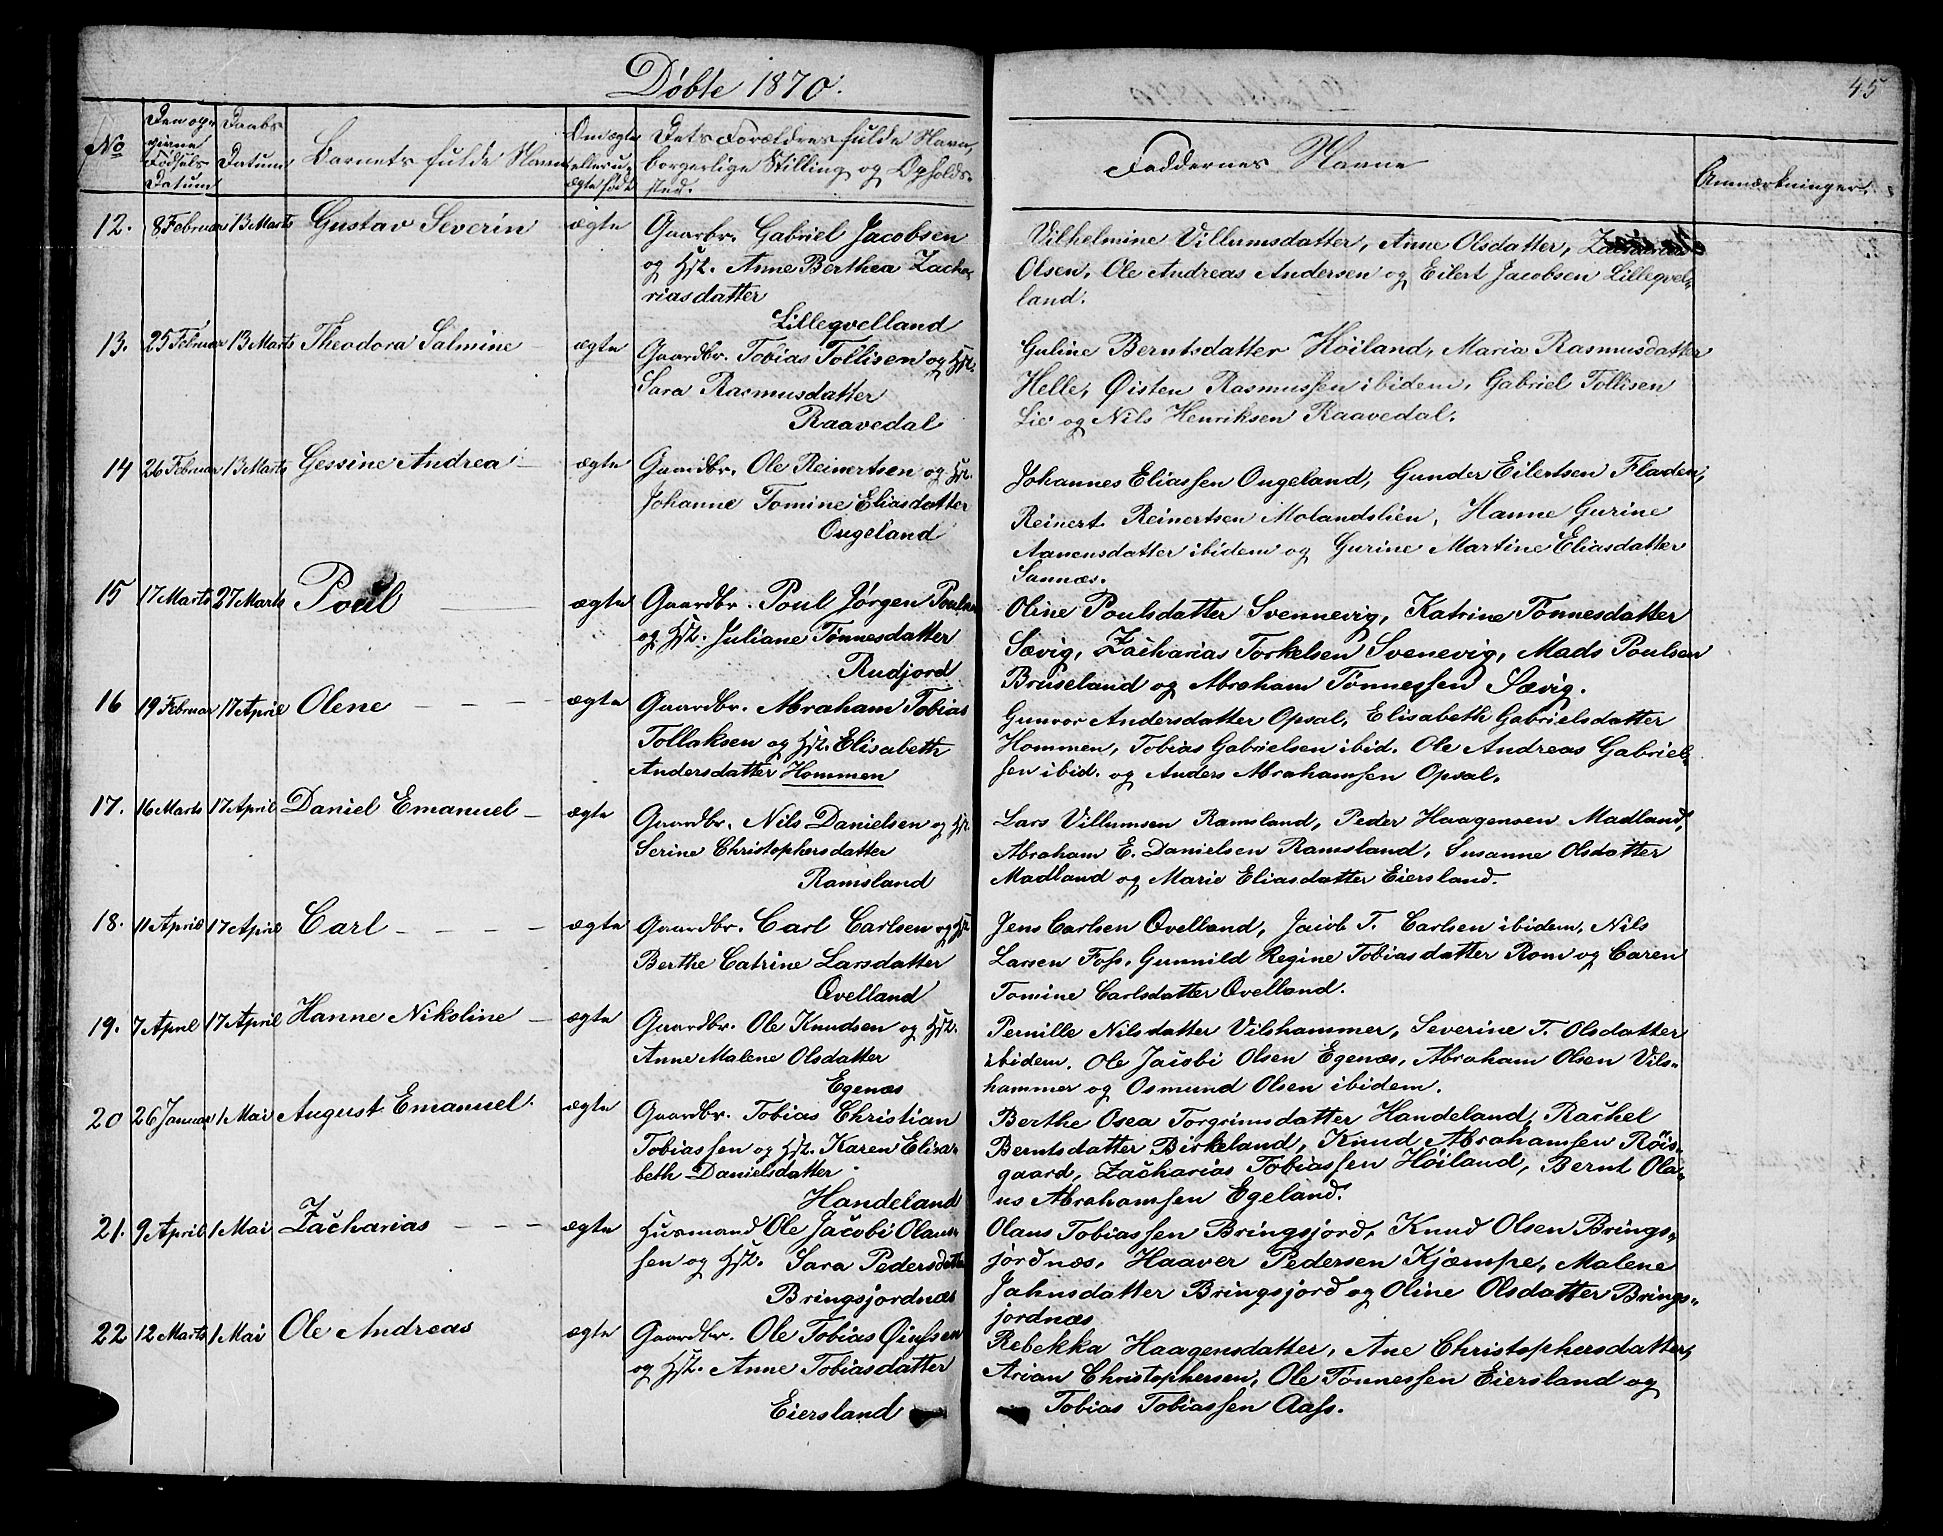 Døbte 1870.
45
No
Den op-
givne
Fødsels
Datum
Daabs
Datum
Barnets fulde Navn
Om ægte
eller u-
ægte født
Dets Forældres fulde Navn,
borgerlige Stilling og Opholds-
sted.
Faddernes Navne
Anmærkninger.
12. 8 Februar 13 Marts Gustav Severin ægte Gaarbr. Gabriel Jacobsen
og Hst. Anne Berthea Zacha-
riasdatter
Lillegvelland
Vilhelmine Villumsdatter, Anne Olsdatter,
Olsen, Ole Andreas Andersen og Eilert Jacobsen Lillegvel-
land.
13. 25 Februar 13 Marts Theodora Salmine – ægte Gaardbr. Tobias Tollisen og Hst.
Sara Rasmusdatter
Raavedal
Guline Berntsdatter Høiland, Maria Rasmusdatter
Helle, Øisten Rasmussen ibidem, Gabriel Tollisen
Lie og Nils Henriksen Raavedal.
14 26 Februar 13 Marts Gessine Andrea – ægte Gaardbr. Ole Reinertsen og Hst.
Johanne Tomine Eliasdatter
Ougeland
Johannes Eliassen Ougeland, Gunder Eilertsen Fladen,
Reinert Reinertsen Molandslien, Hanne Gurine
Aanensdatter ibidem og Gurine Martine Eliasdatter
Sannæs.
15 17 Marts 27 Marts Poul – ægte Gaardbr. Poul Jørgen Poulsen
og Hst. Juliane Tønnesdatter
Rudjord
Oline Poulsdatter Svennevig, Katrine Tønnesdatter
Sævig, Zacharias Torkelsen Svenevig, Mads Poulsen
Bruseland og Abraham Tønnessen Sævig.
16 19 Februar 17 April Olene – – – – ægte Gaardbr. Abraham Tobias
Tollaksen og Hst. Elisabeth
Andersdatter Hommen
Gunvor Andersdatter Opsal, Elisabeth Gabrielsdatter
Hommen, Tobias Gabrielsen ibid. Ole Andreas Gabriel-
sen ibid. og Anders Abrahamsen Opsal.
17. 16 Marts 17 April Daniel Emanuel – ægte Gaardbr. Nils Danielsen og Hst
Serine Christophersdatter
Ramsland
Lars Villumsen Ramsland, Peder Haagensen Madland,
Abraham E. Danielsen Ramsland, Susanne Olsdatter
Madland og Marie Eliasdatter Eiersland.
18. 11 April 17 April Carl – – – – ægte Gaardbr. Carl Carlsen og Hst
Berthe Catrine Larsdatter
Qvelland
Jens Carlsen Qvelland, Jacob T. Carlsen ibidem, Nils
Larsen Foss, Gunnild Regine Tobiasdatter Rom og Caren
Tomine Carlsdatter Qvelland.
19. 7 April 17 April Hanne Nikoline – ægte Gaardbr. Ole Knudsen og Hst.
Anne Malene Olsdatter
Egenæs
Pernille Nilsdatter Vilshammer, Severine T. Olsdatter
ibidem. Ole Jacobi Olsen Egenæs, Abraham Olsen Vils-
hammer og Osmund Olsen ibidem.
20 26 Januar 1 Mai August Emanuel ægte Gaardbr. Tobias Christian
Tobiassen og Hst. Karen Elisa-
beth Danielsdatter
Handeland
Berthe Osea Torgrimsdatter Handeland, Rachel
Berntsdatter Birkeland, Knud Abrahamsen Røis-
gaard, Zacharias Tobiassen Høiland, Bernt Ola-
us Abrahamsen Egeland.
21. 9 April 1 Mai Zacharias – – – ægte Husmand Ole Jacobi Olaus-
sen og Hst. Sara Pedersdatter
Bringsjordnæs
Olaus Tobiassen Bringsjord, Knud Olsen Brings-
jordnæs, Haaver Pedersen Kjæmpe, Malene
Jahnsdatter Bringsjord og Oline Olsdatter Brings-
jordnæs
22 12 Marts 1 Mai Ole Andreas ægte Gaardbr. Ole Tobias
og Hst. Anne Tobiasdatter
Eiersland
Rebekka Haagensdatter, Ane Christophersdatter,
Arian Christophersen, Ole Tønnessen Eiersland og
Tobias Tobiassen Aass.